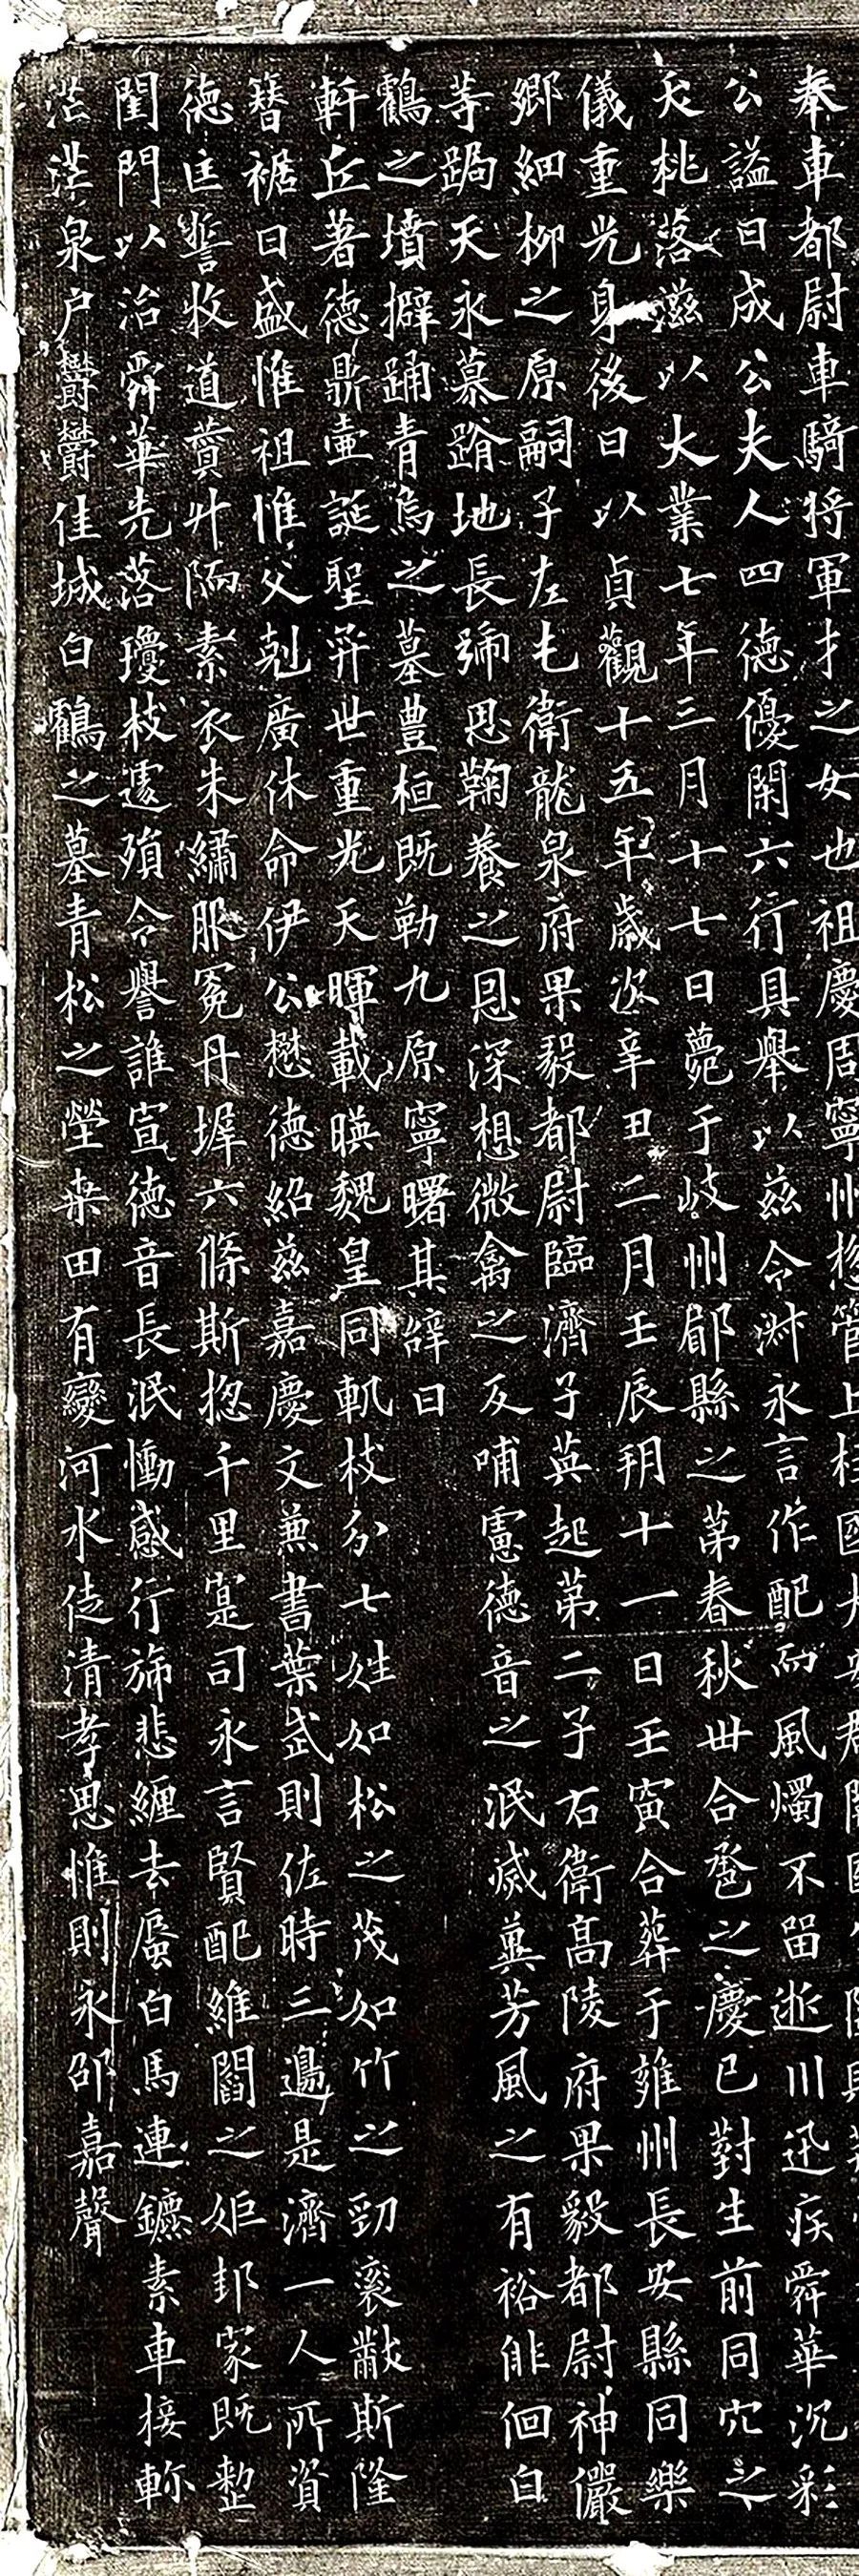 奉車都尉車騎將軍才之女也祖慶周寧州揔管上柱國
公謚曰成公夫人四德優閑六行具舉以茲令淋永言作配而風燭不留逝川迅疾舜華沉彩
夭桃落滋以大業七年三月十七日薨于岐州郿縣之第春秋丗合卺之慶已對生前同穴之
儀重光身後曰以貞觀十五年歲次辛丑二月壬辰朔十一日壬寅合葬于雍州長安縣同樂
鄉細柳之原嗣子左屯衛龍泉府果毅都尉臨濟子英起第二子右衛高陵府果毅都尉神儼
等跼天永慕蹐地長號思鞠養之恩深想微禽之反哺慮德音之泯滅冀芳風之有裕俳佪白
鶴之墳擗踊青烏之墓豐桓既勒九原寧曙其辞曰
軒丘著德鼎壷誕聖弈世重光天暉載暎魏皇同軌枝分七姓如松之茂如竹之勁袞黻斯隆
簪裾日盛惟祖惟父剋廣休命伊公懋德紹茲嘉慶文兼書葉武則佐時三邊是濟一人所資
德匡誓牧道賛升陑素衣朱繡服冕丹墀六條斯揔千里寔司永言賢配維閻之姬邦家既整
閨門以治舜華先落瓊枝遽殞令譽誰宣德音長泯慟感行旆悲纏去蜃白馬連鑣素車接軫
茫茫泉户欝欝佳城白鶴之墓青松之塋桒田有變河水徒清孝思惟則永邵嘉聲